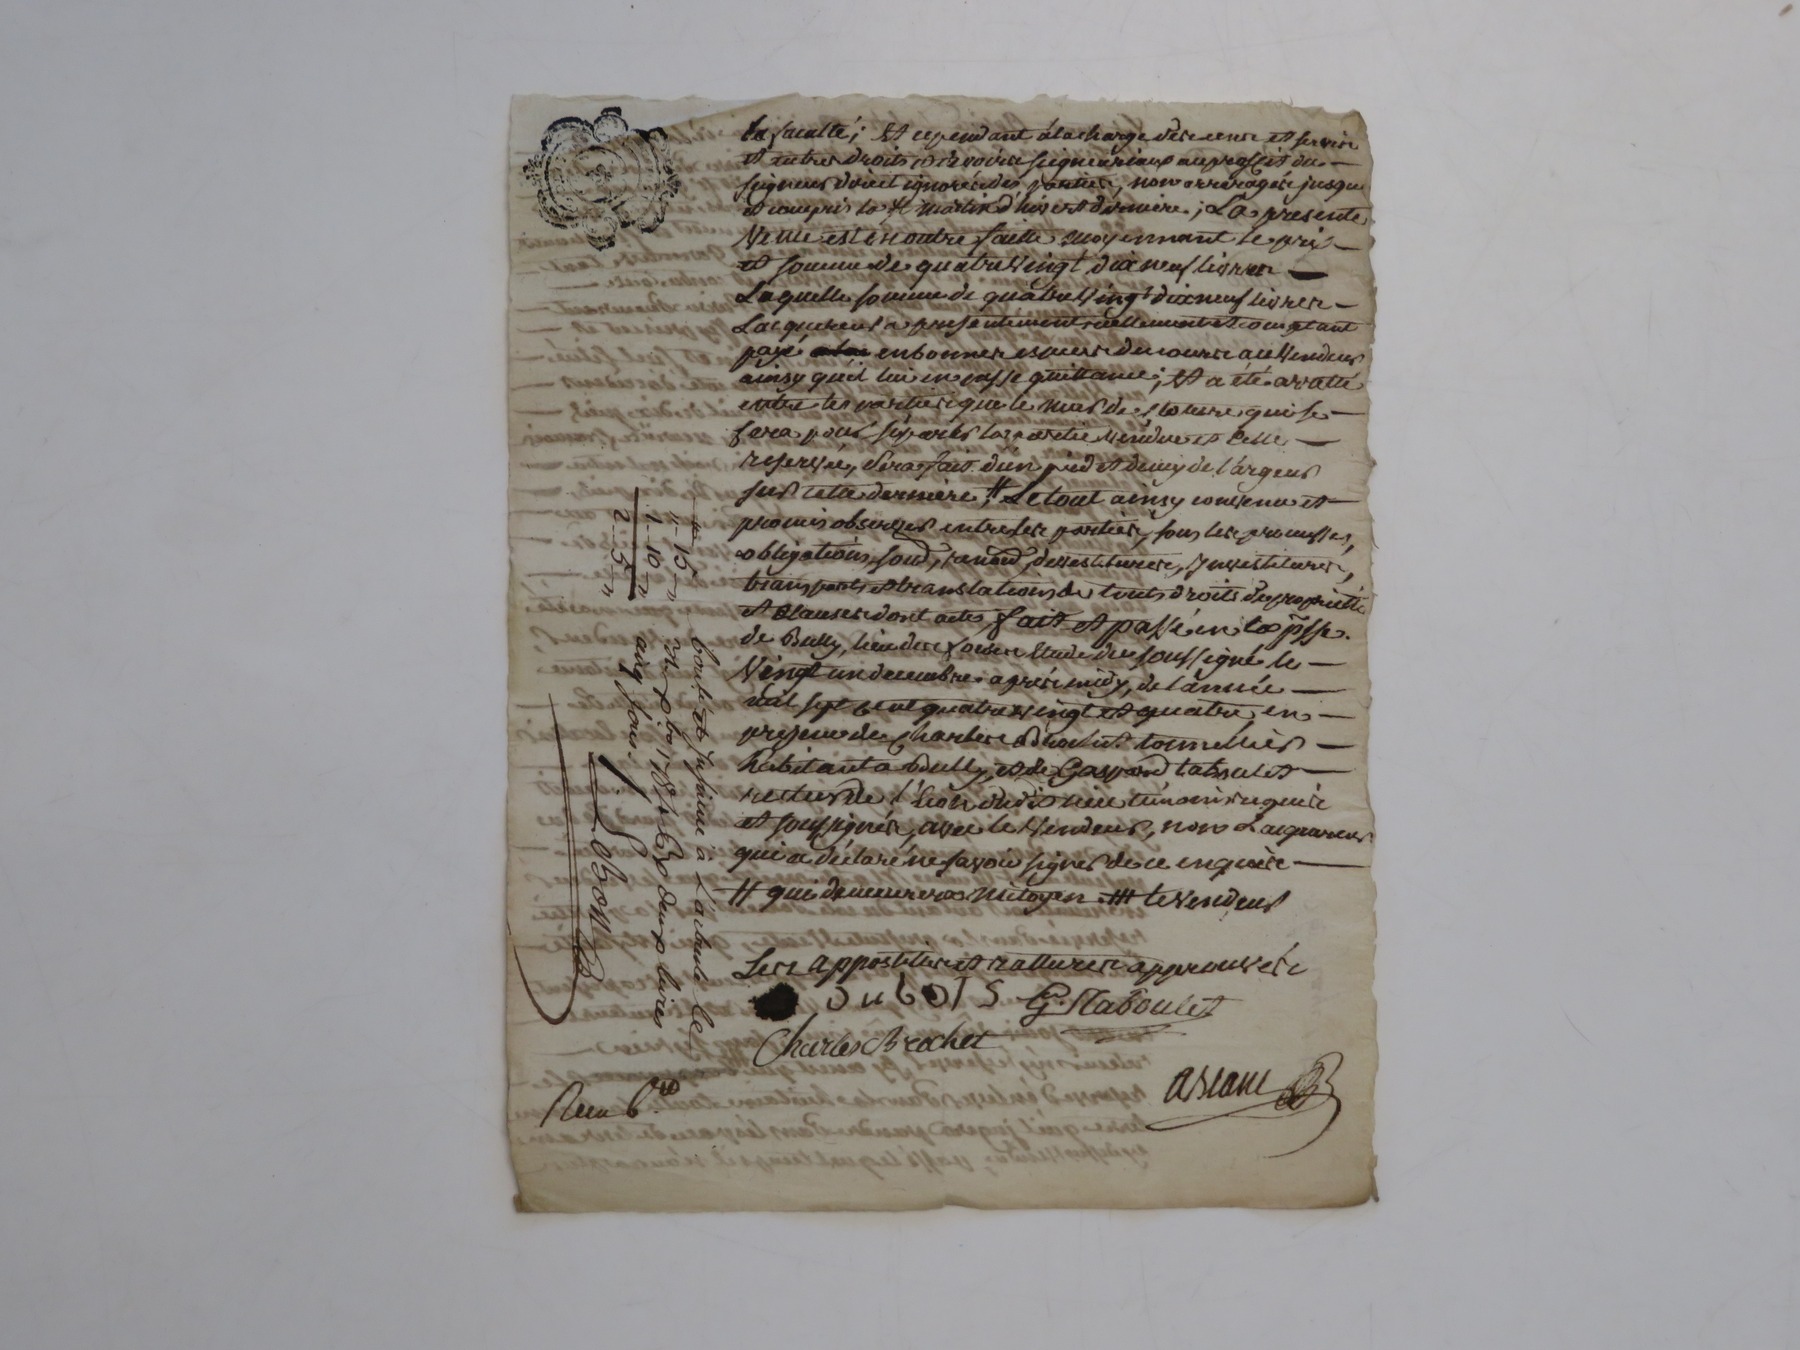 la faculté; Et cependant à la charge des cens et servis
et autres droits et devoirs seigneuriaux au proffit du
seigneur dyceux ignorés des parties, non arreragés jusque
et compris la St martin d'hivert derniere; La presente
Vente est en outre faitte moyennant le prix
et somme de quatre Vingt dix neuf livres
Laquelle somme de quatre Vingt dix neuf livres
Lacquereur a presentement reellement et comptant
payé en bonnes especes du cours au Vendeur
ainsy qu'il lui en passe quittance; Et a été arretté
entre les parties que le mur de cloture qui se
fera pour séparer la partie Vendue et celle
reservée, sera fait d'un pied et demy de l'argeur
sur cette derniere # Le tout ainsy convenu et
promis observer entre les parties, sous les promesses,
obligations, soud, renond, devestitures, Investitures,
transports et translations de touts droits de proprietté
et Clauses dont acte, fait et passé en la psse.
de Bully, lieu des Etude du soussigné le
Vingt un decembre après midy, de l'année
mil sept cent quatre vingt et quatre, en
presence de Charles Brochet tonnellier
habitant a Bully, et de Gaspard taboulet
recteur de l'écon dudit lieu temoins requis
et soussignés, avec le Vendeur, non L'acquereur
qui a déclaré ne savoir signer de ce enquis
# qui demeurera mitoyen ## le Vendeur
Les appostilles et rattures approuvés
Dubois G. Taboulet
Charles Brochet
1 - 10 - "
2 - 5 - "
Controllé et Insinué à L'arbresle le
Reçu deux livres
cinq sous.